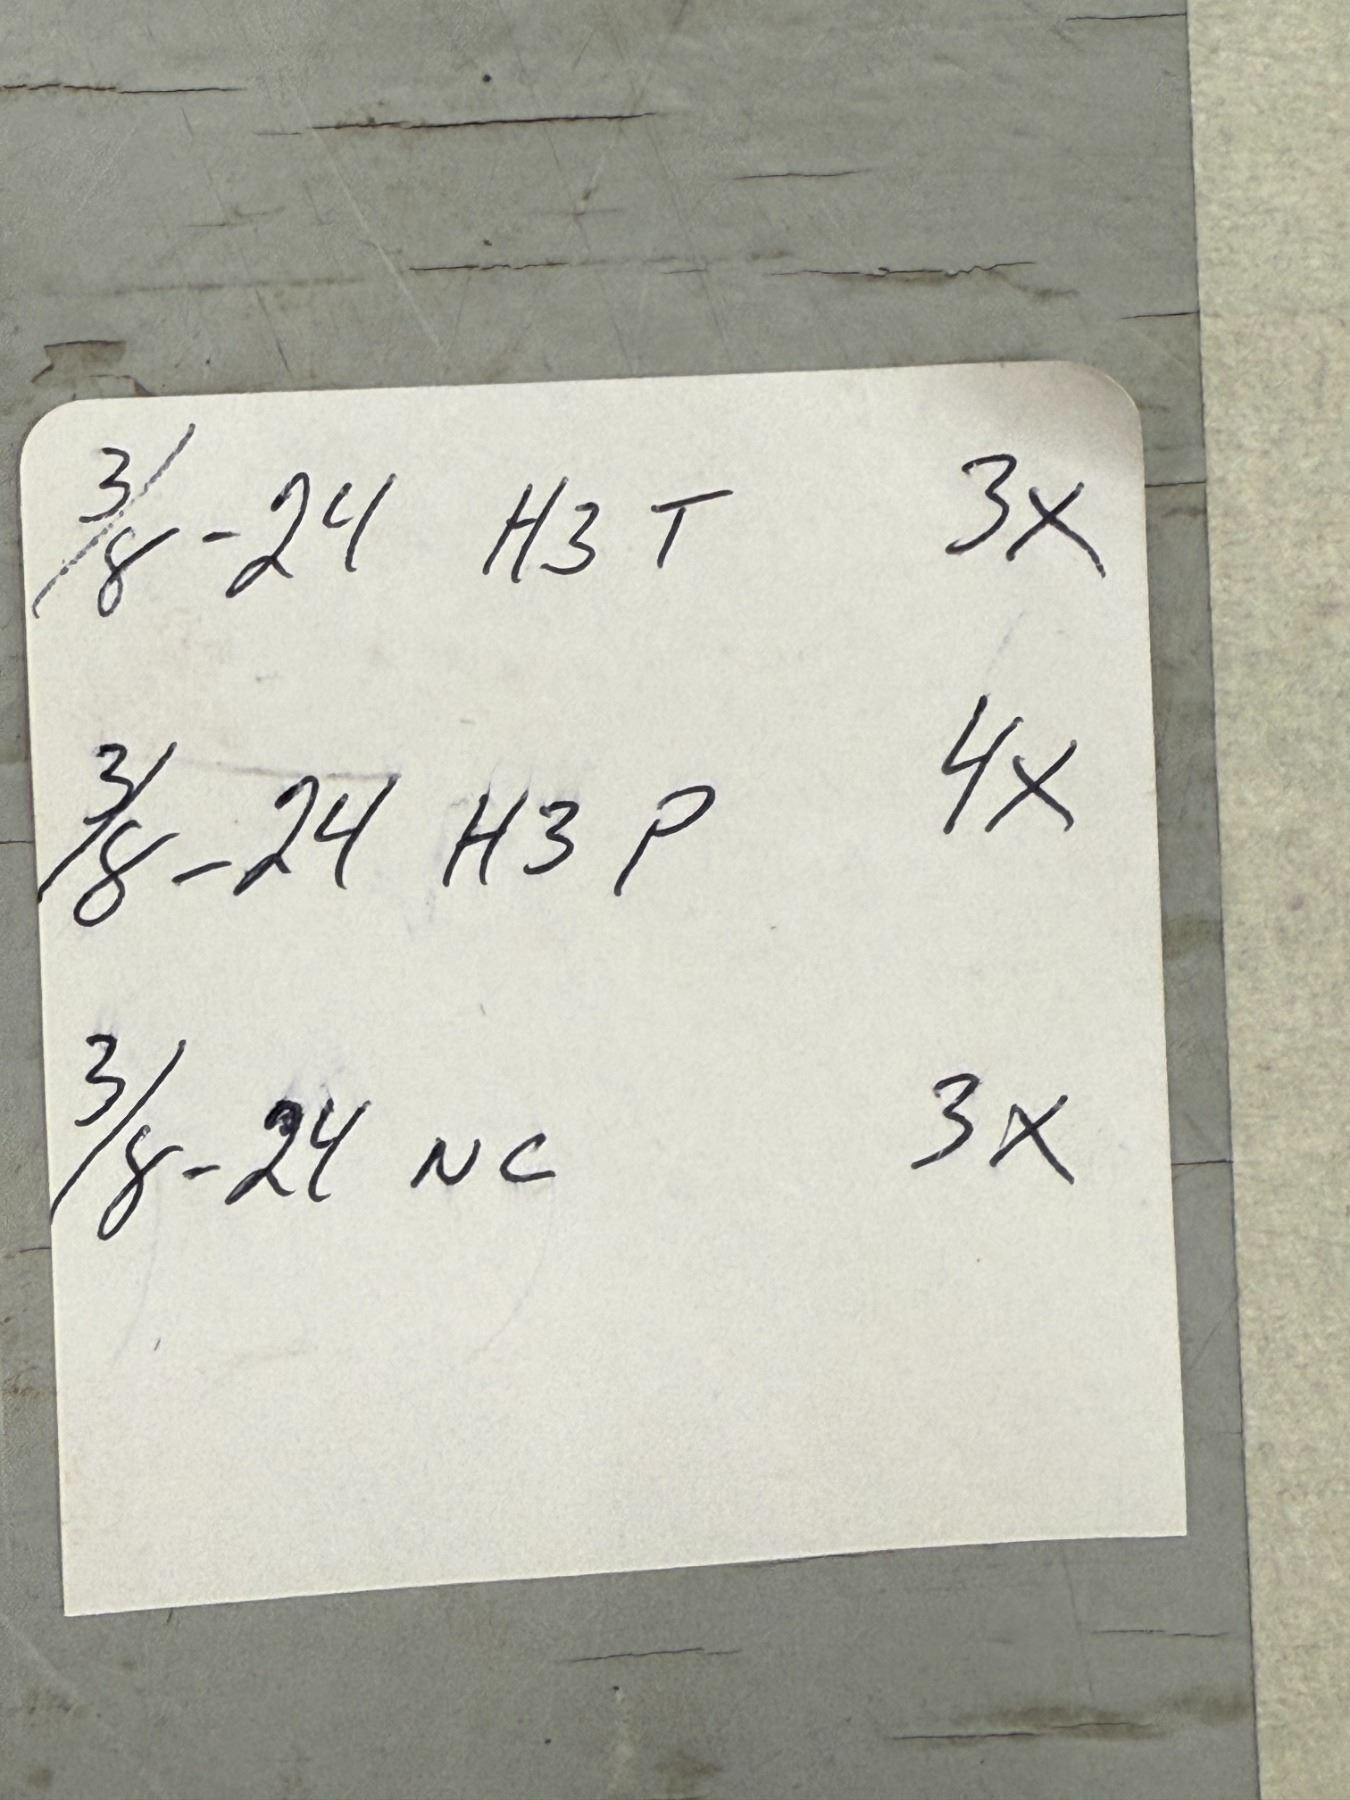 3/8-24 H3 T 3X
3/8-24 H3 P 4X
3/8-24 NC 3X